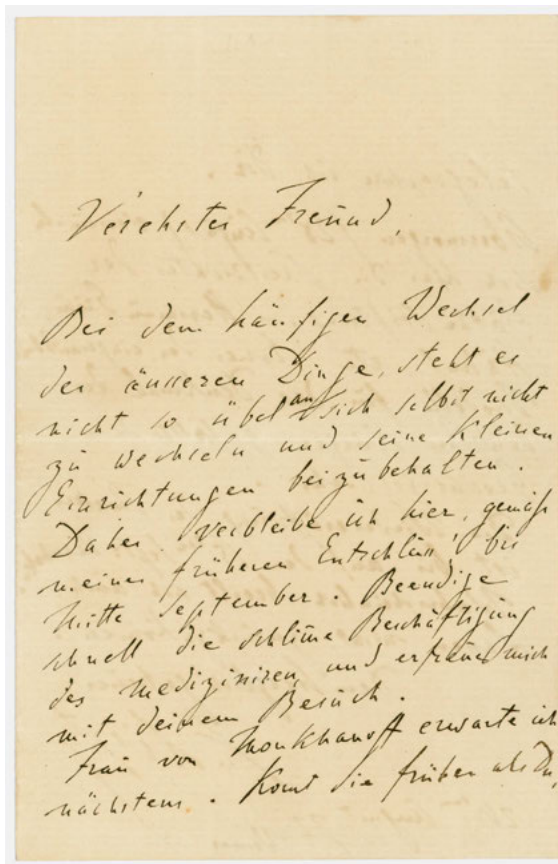 Verehrter Freund,
Bei dem häufigen Wechsel
der äusseren Dinge, steht es
nicht so übel an sich selbst nicht
zu wechseln und seine kleinen
Einrichtungen beizubehalten.
Daher verbleibe ich hier, gemäss
meinem früheren Entschluss, bis
Mitte September. Beendige
schnell die schlime Beschäftigung
des medizinieren, und erfreue mich
mit deinem Besuch.
Frau von Moukhanoff erwarte ich
nächstens. Komt sie früher als Du,